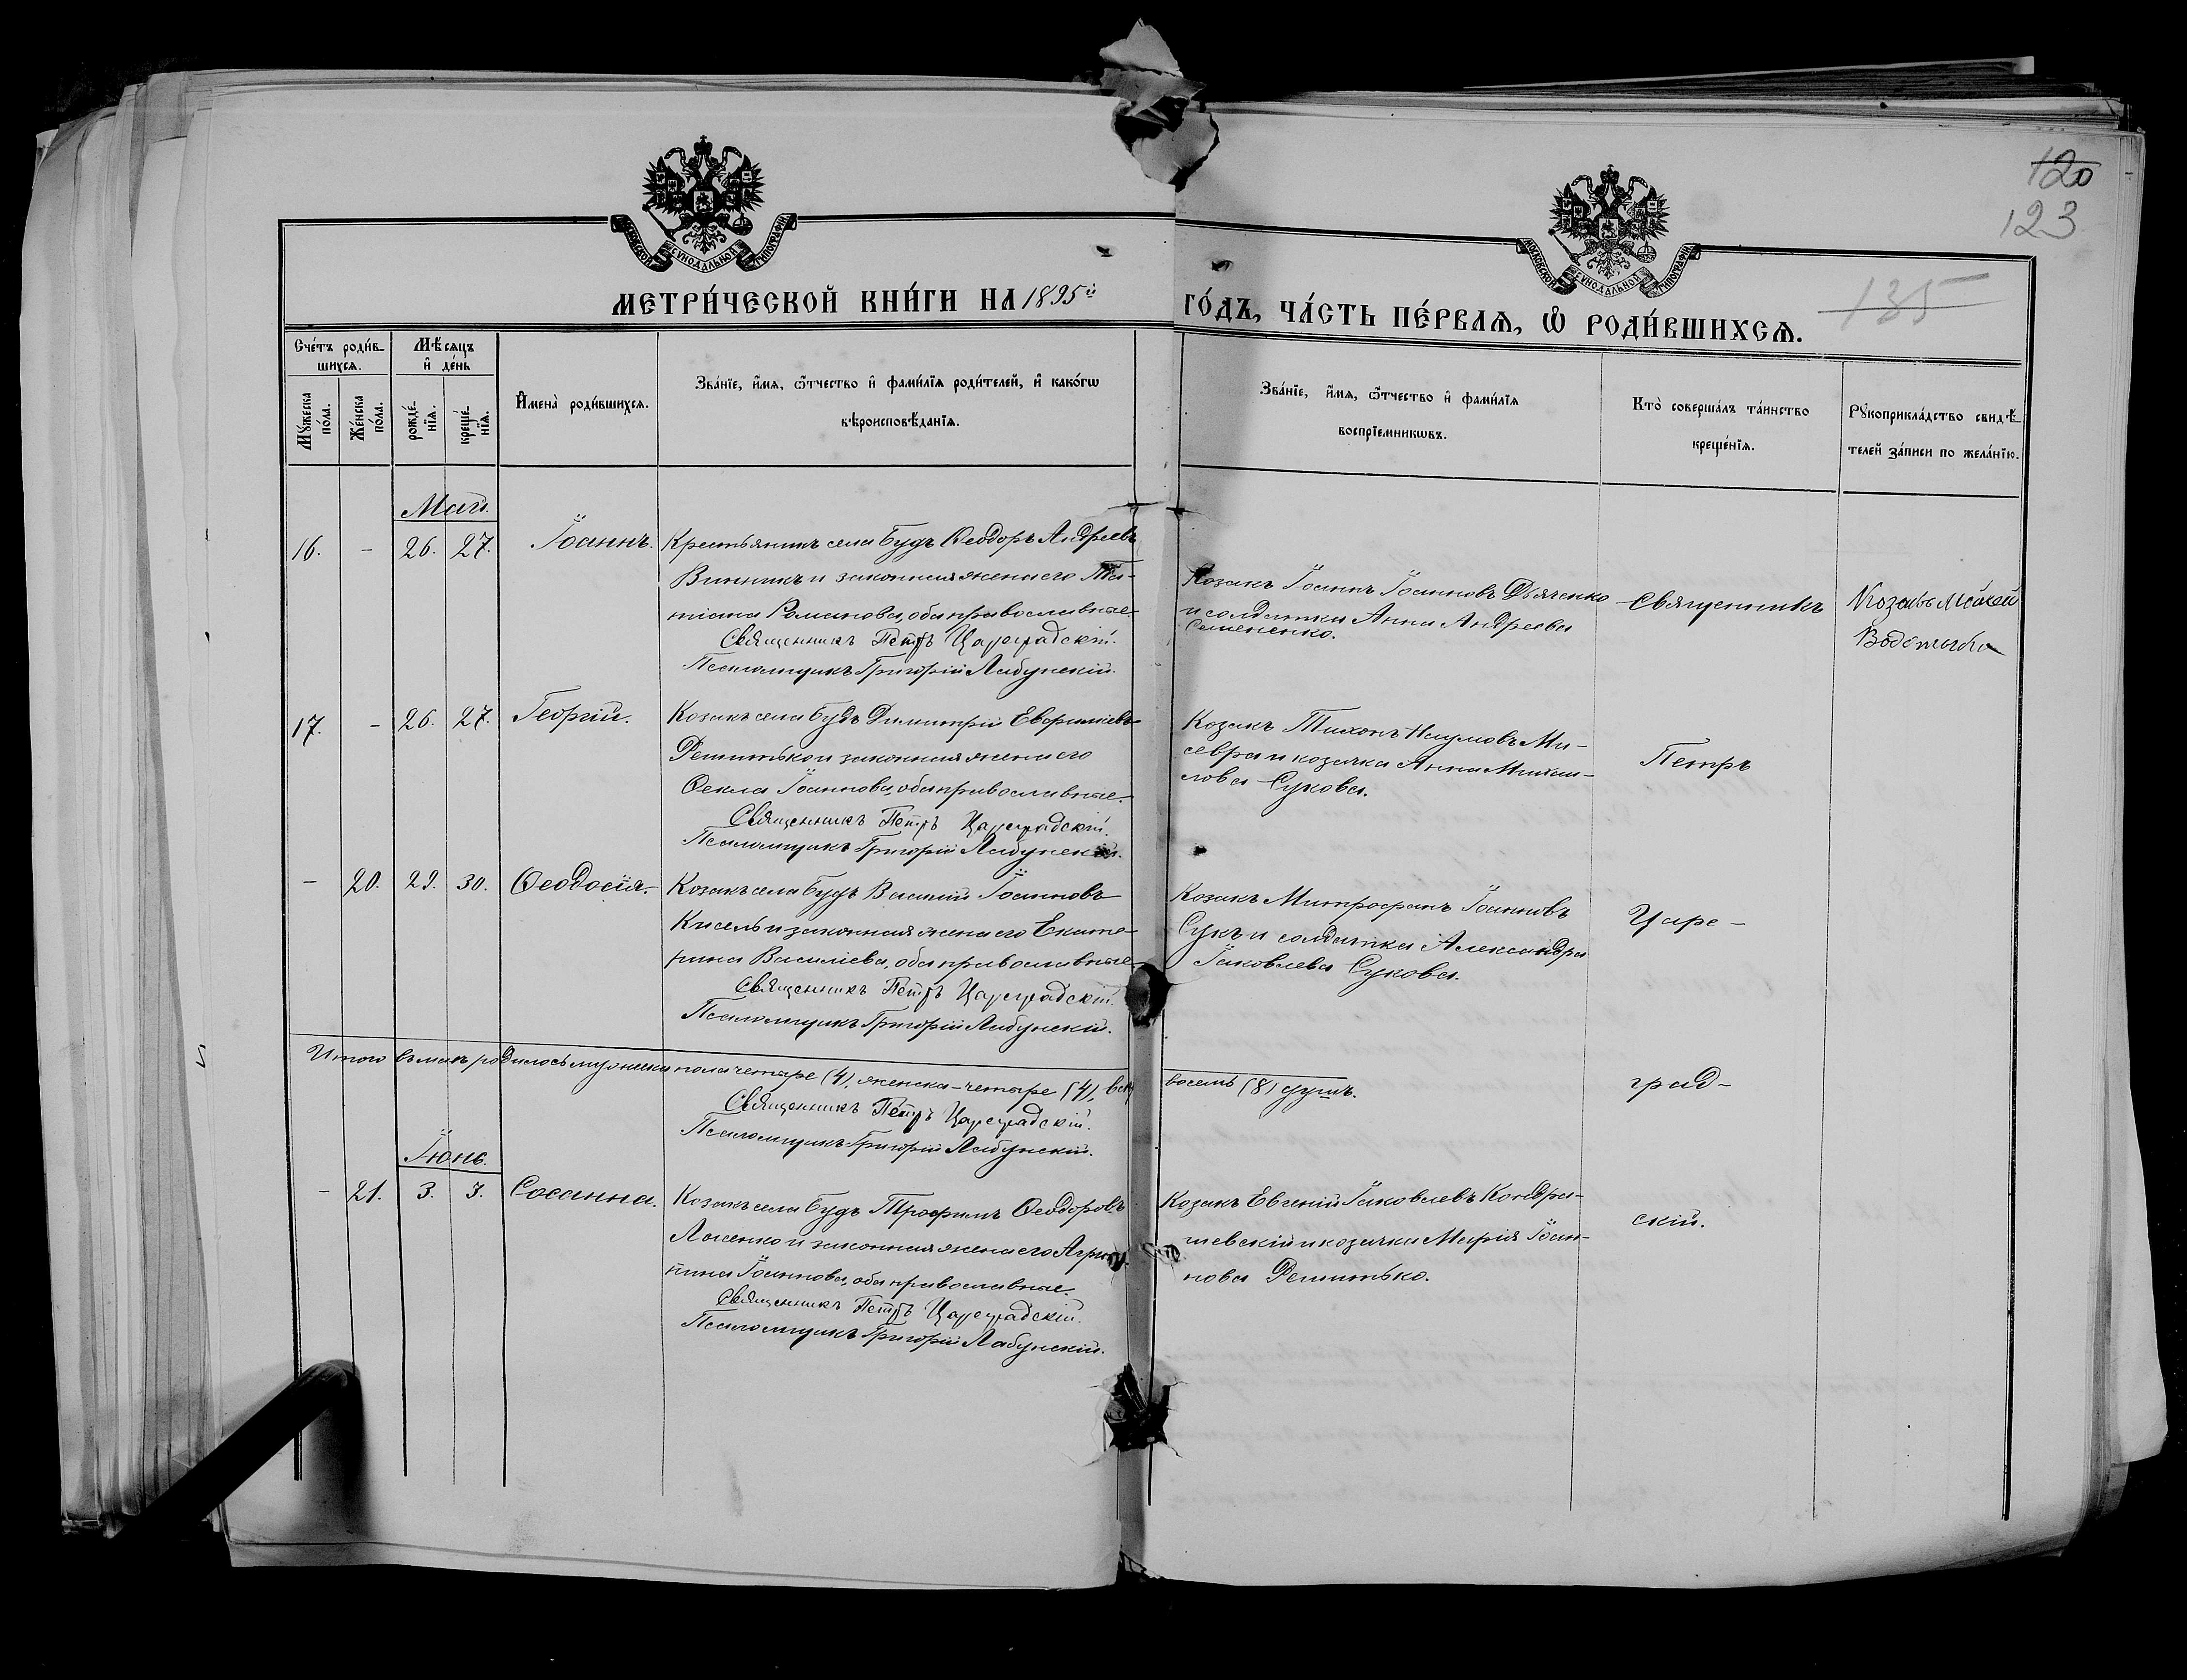 120
123
135
МОСКОВСКОЙ СѴНОДАЛЬНОЙ ТИПОГРАФІИ
МОСКОВСКОЙ СѴНОДАЛЬНОЙ ТИПОГРАФІИ
МЕТРИ́ЧЕСКОЙ КНИ́ГИ НА 1895й ГО́ДЪ, ЧА́СТЬ ПЕ́РВАѦ, Ѽ РОДИ́ВШИХСѦ.
Сче́тъ роди́в-
шихсѧ.
Мѣ́сѧцъ
и҆ де́нь
Мꙋ́жеска
по́ла.
Же́нска
по́ла.
рожде́-
нїѧ.
креще́-
нїѧ.
И҆мена̀ роди́вшихсѧ.
Зва́нїе, и҆́мѧ, ѻ҆́тчество и҆ фами́лїѧ роди́телей, и҆ како́гѡ
вѣроисповѣ́данїѧ.
Зва́нїе, и҆́мѧ, ѻ҆́тчество и҆ фами́лїѧ
воспрїе́мникѡвъ.
Кто̀ соверша́лъ та́инство
креще́нїѧ.
Рꙋкоприкла́дство свидѣ́-
телей за́писи по жела́нїю.
Май.
16. - 26. 27. Іоаннъ. Крестьянинъ села Будъ Ѳеодоръ Андреевъ
Винникъ и законная жена его Та-
тіана Романова, оба православные.
Священникъ Петръ Цареградскій.
Псаломщикъ Григорій Лабунскій.
Козакъ Іоаннъ Іоанновъ Дьяченко
и солдатка Анна Андреева
Семененко.
Священникъ
Козакъ Мокей
Водотыка
17. - 26. 27. Георгій. Козакъ села Будъ Димитрій Евфиміевъ
Решитько и законная жена его
Ѳекла Іоаннова, оба православные.
Священникъ Петръ Цареградскій.
Псаломщикъ Григорій Лабунскій.
Козакъ Тихонъ Наумовъ Ми-
севра и козачка Анна Михаи-
лова Сукова.
Петръ
- 20. 29. 30. Ѳеодосія. Козакъ села Будъ Василій Іоанновъ
Кисель и законная жена его Екате-
рина Василіева, оба православные
Священникъ Петръ Цареградскій.
Псаломщикъ Григорій Лабунскій.
Козакъ Митрофанъ Іоанновъ
Сукъ и солдатка Александра
Іаковлева Сукова.
Царе-
Итого въ маѣ родилось мужеска пола четыре (4), женска - четыре (4), всѣхъ восемь (8) душъ.
Священникъ Петръ Цареградскій.
Псаломщикъ Григорій Лабунскій.
град-
Іюнь.
- 21. 3. 3. Сосанна. Козакъ села Будъ Трофимъ Ѳеодоровъ
Лысенко и законная жена его Агрип-
пина Іоаннова, оба православные.
Священникъ Петръ Цареградскій.
Псаломщикъ Григорій Лабунскій.
Козакъ Евгеній Іаковлевъ Кондра-
шевскій и козачка Марія Іоан-
нова Решитько.
скій.